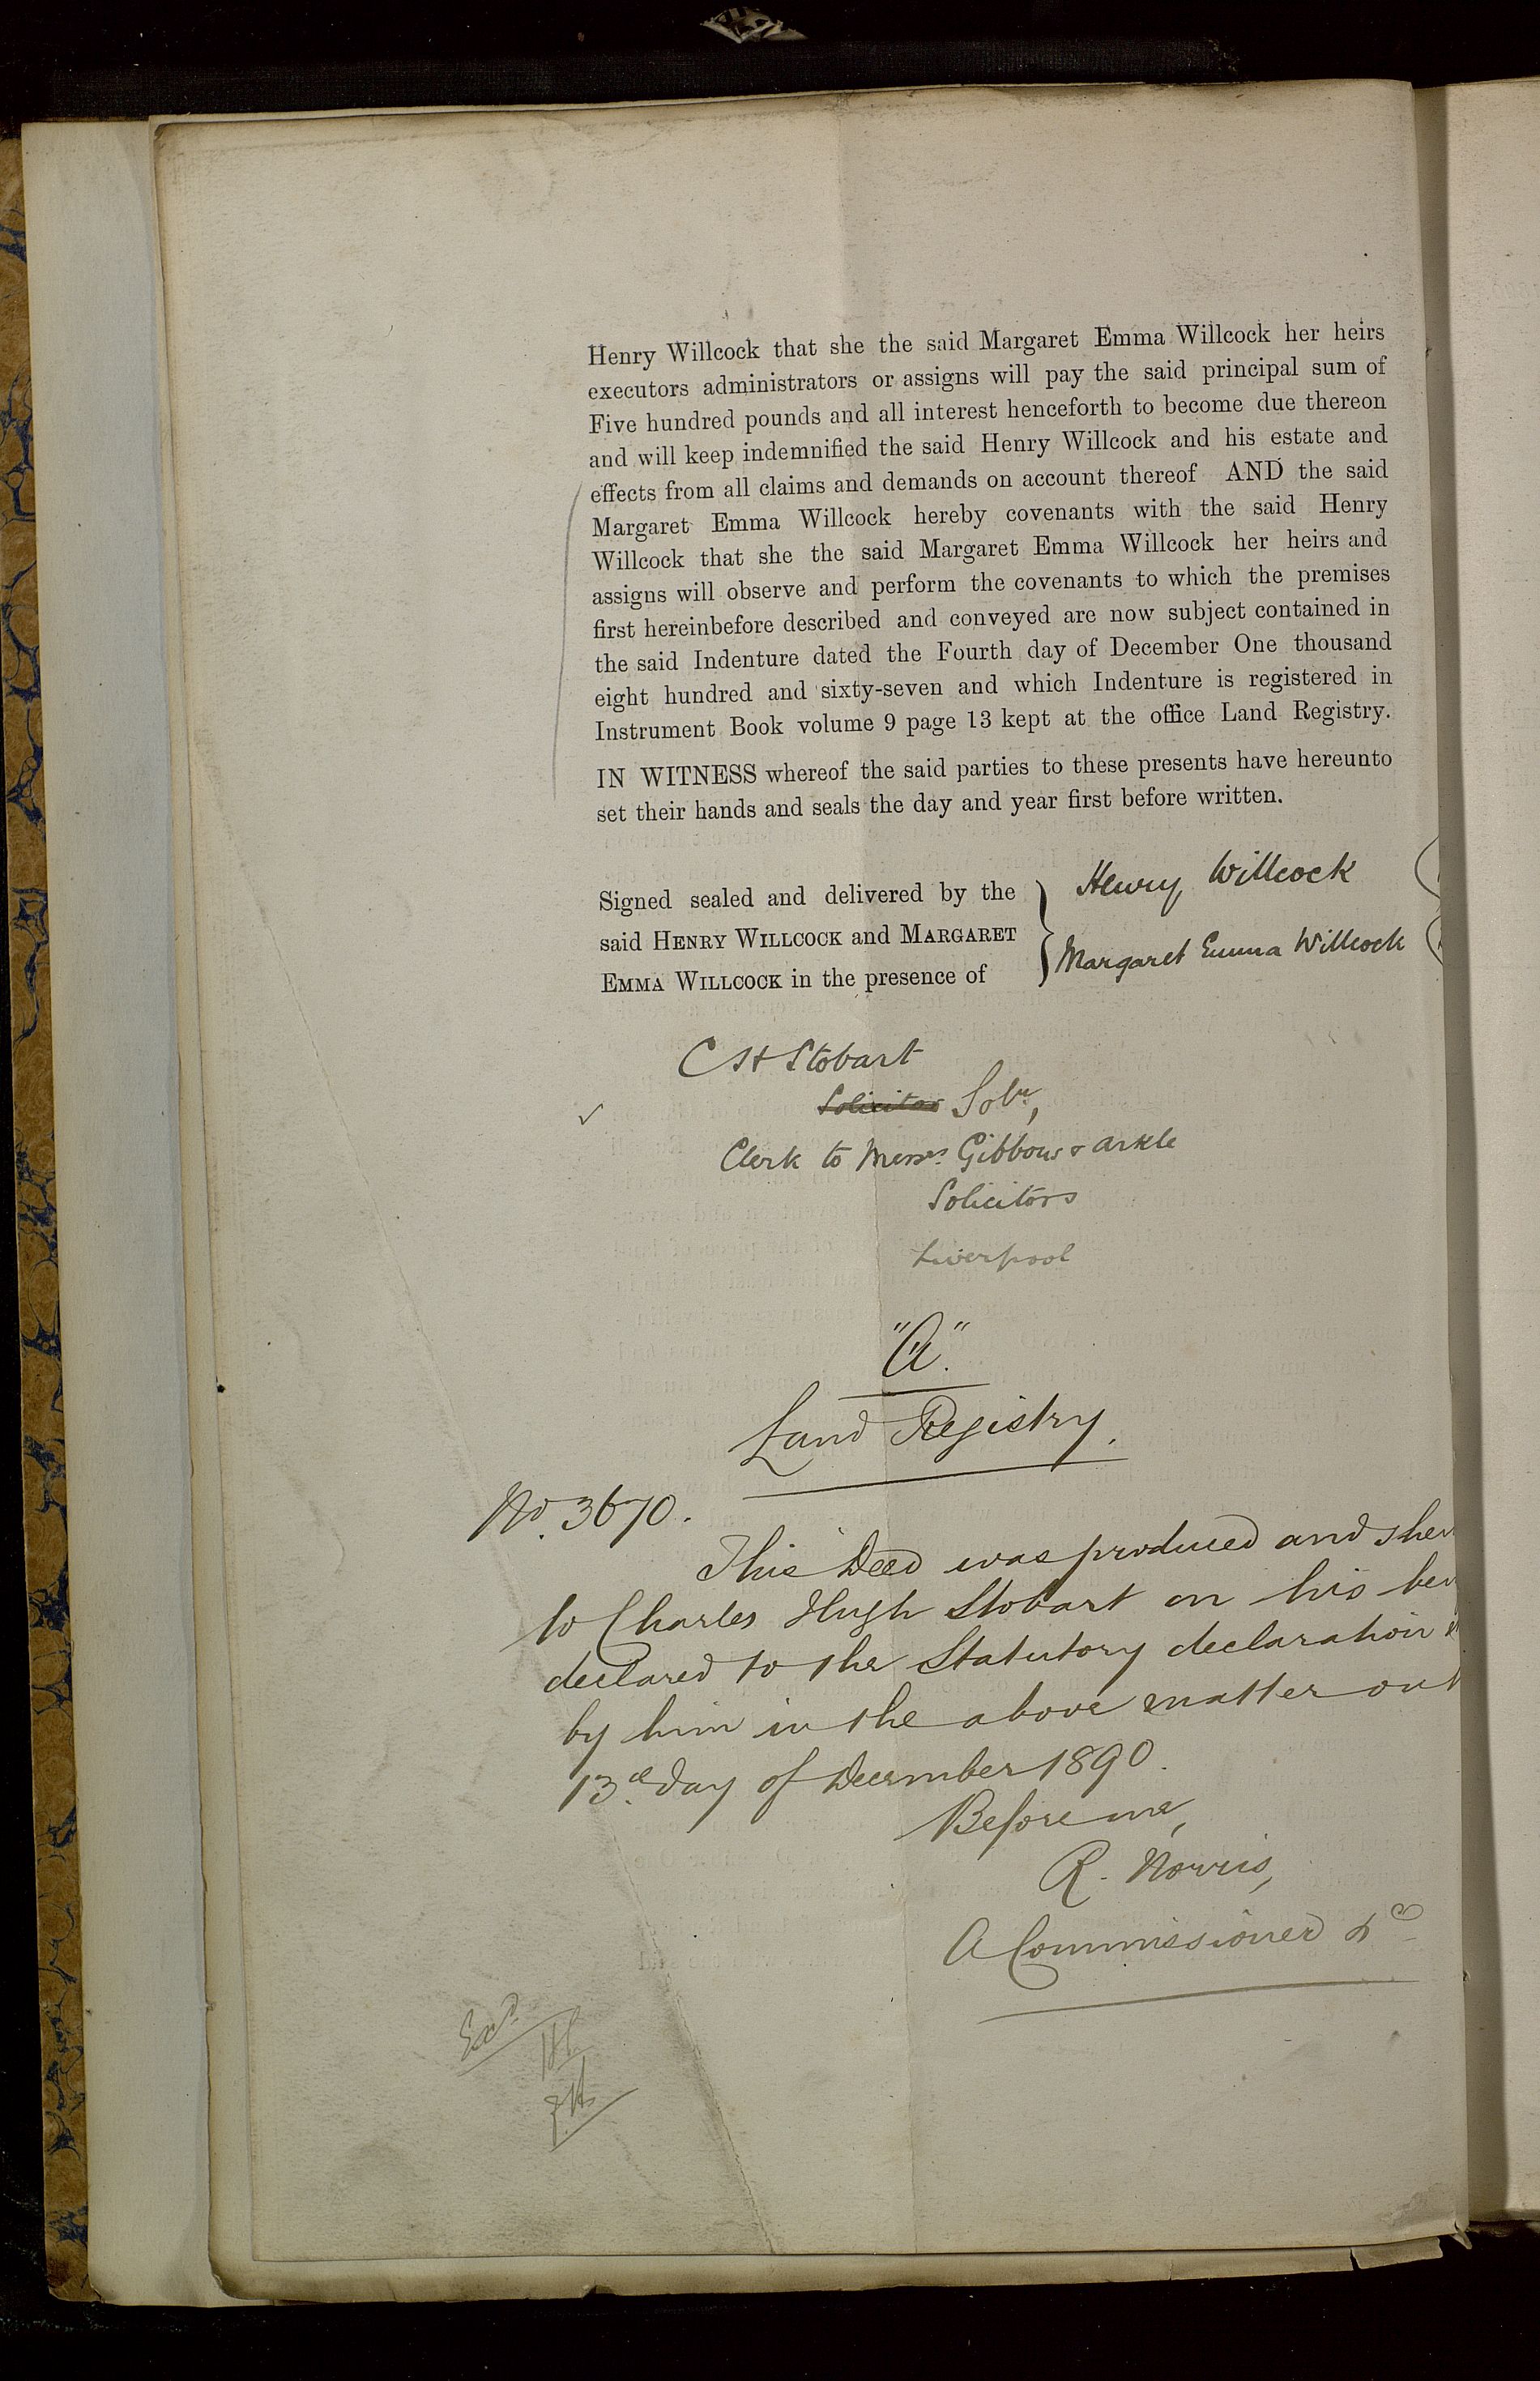 Henry Willcock that she the said Margaret Emma Willcock her heirs
executors administrators or assigns will pay the said principal sum of
Five hundred pounds and all interest henceforth to become due thereon
and will keep indemnified the said Henry Willcock and his estate and
effects from all claims and demands on account thereof AND the said
Margaret Emma Willcock hereby covenants with the said Henry
Willcock that she the said Margaret Emma Willcock her heirs and
assigns will observe and perform the covenants to which the premises
first hereinbefore described and conveyed are now subject contained in
the said Indenture dated the Fourth day of December One thousand
eight hundred and sixty-seven and which Indenture is registered in
Instrument Book volume 9 page 13 kept at the office Land Registry.
IN WITNESS whereof the said parties to these presents have hereunto
set their hands and seals the day and year first before written.
Signed sealed and delivered by the
said HENRY WILLCOCK and MARGARET
EMMA WILLCOCK in the presence of
Henry Willcock
Margaret Emma Willcock
C H Stobart
Solicitor Solr,
Clerk to Messrs. Gibbons & Arkle
Solicitors
Liverpool
"A".
Land Registry.
No. 3670.
This Deed was produced and shew
to Charles Hugh Stobart on his
declared to the Statutory declaration
by him in the above matter
13th day of December 1890.
Before me,
R. Norris,
A Commissioner &c
Exd